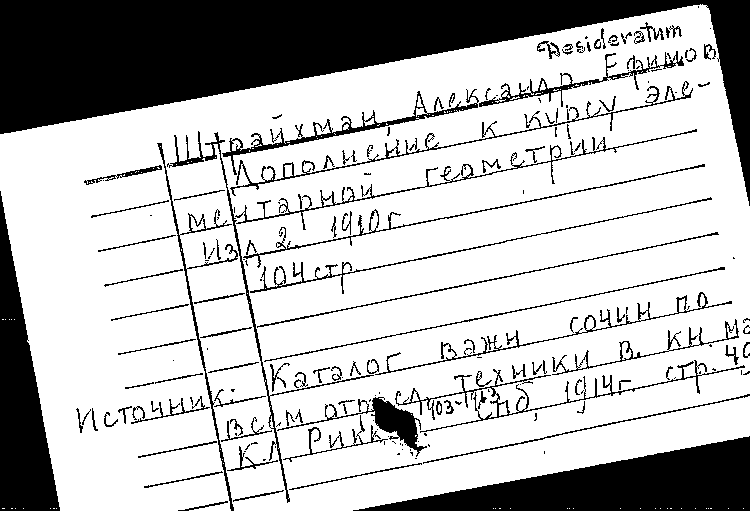 Desideratum
Штрайхман, Александр Ефимов.
Дополнение к курсу эле-
ментарной геометрии.
Изд. 2. 1910 г
104 стр.
Источник: Каталог важн сочин по
всем отрасл. техники в. кн. ма
1903-1913
К.Л. Рикк СПб, 1914г. стр. 40